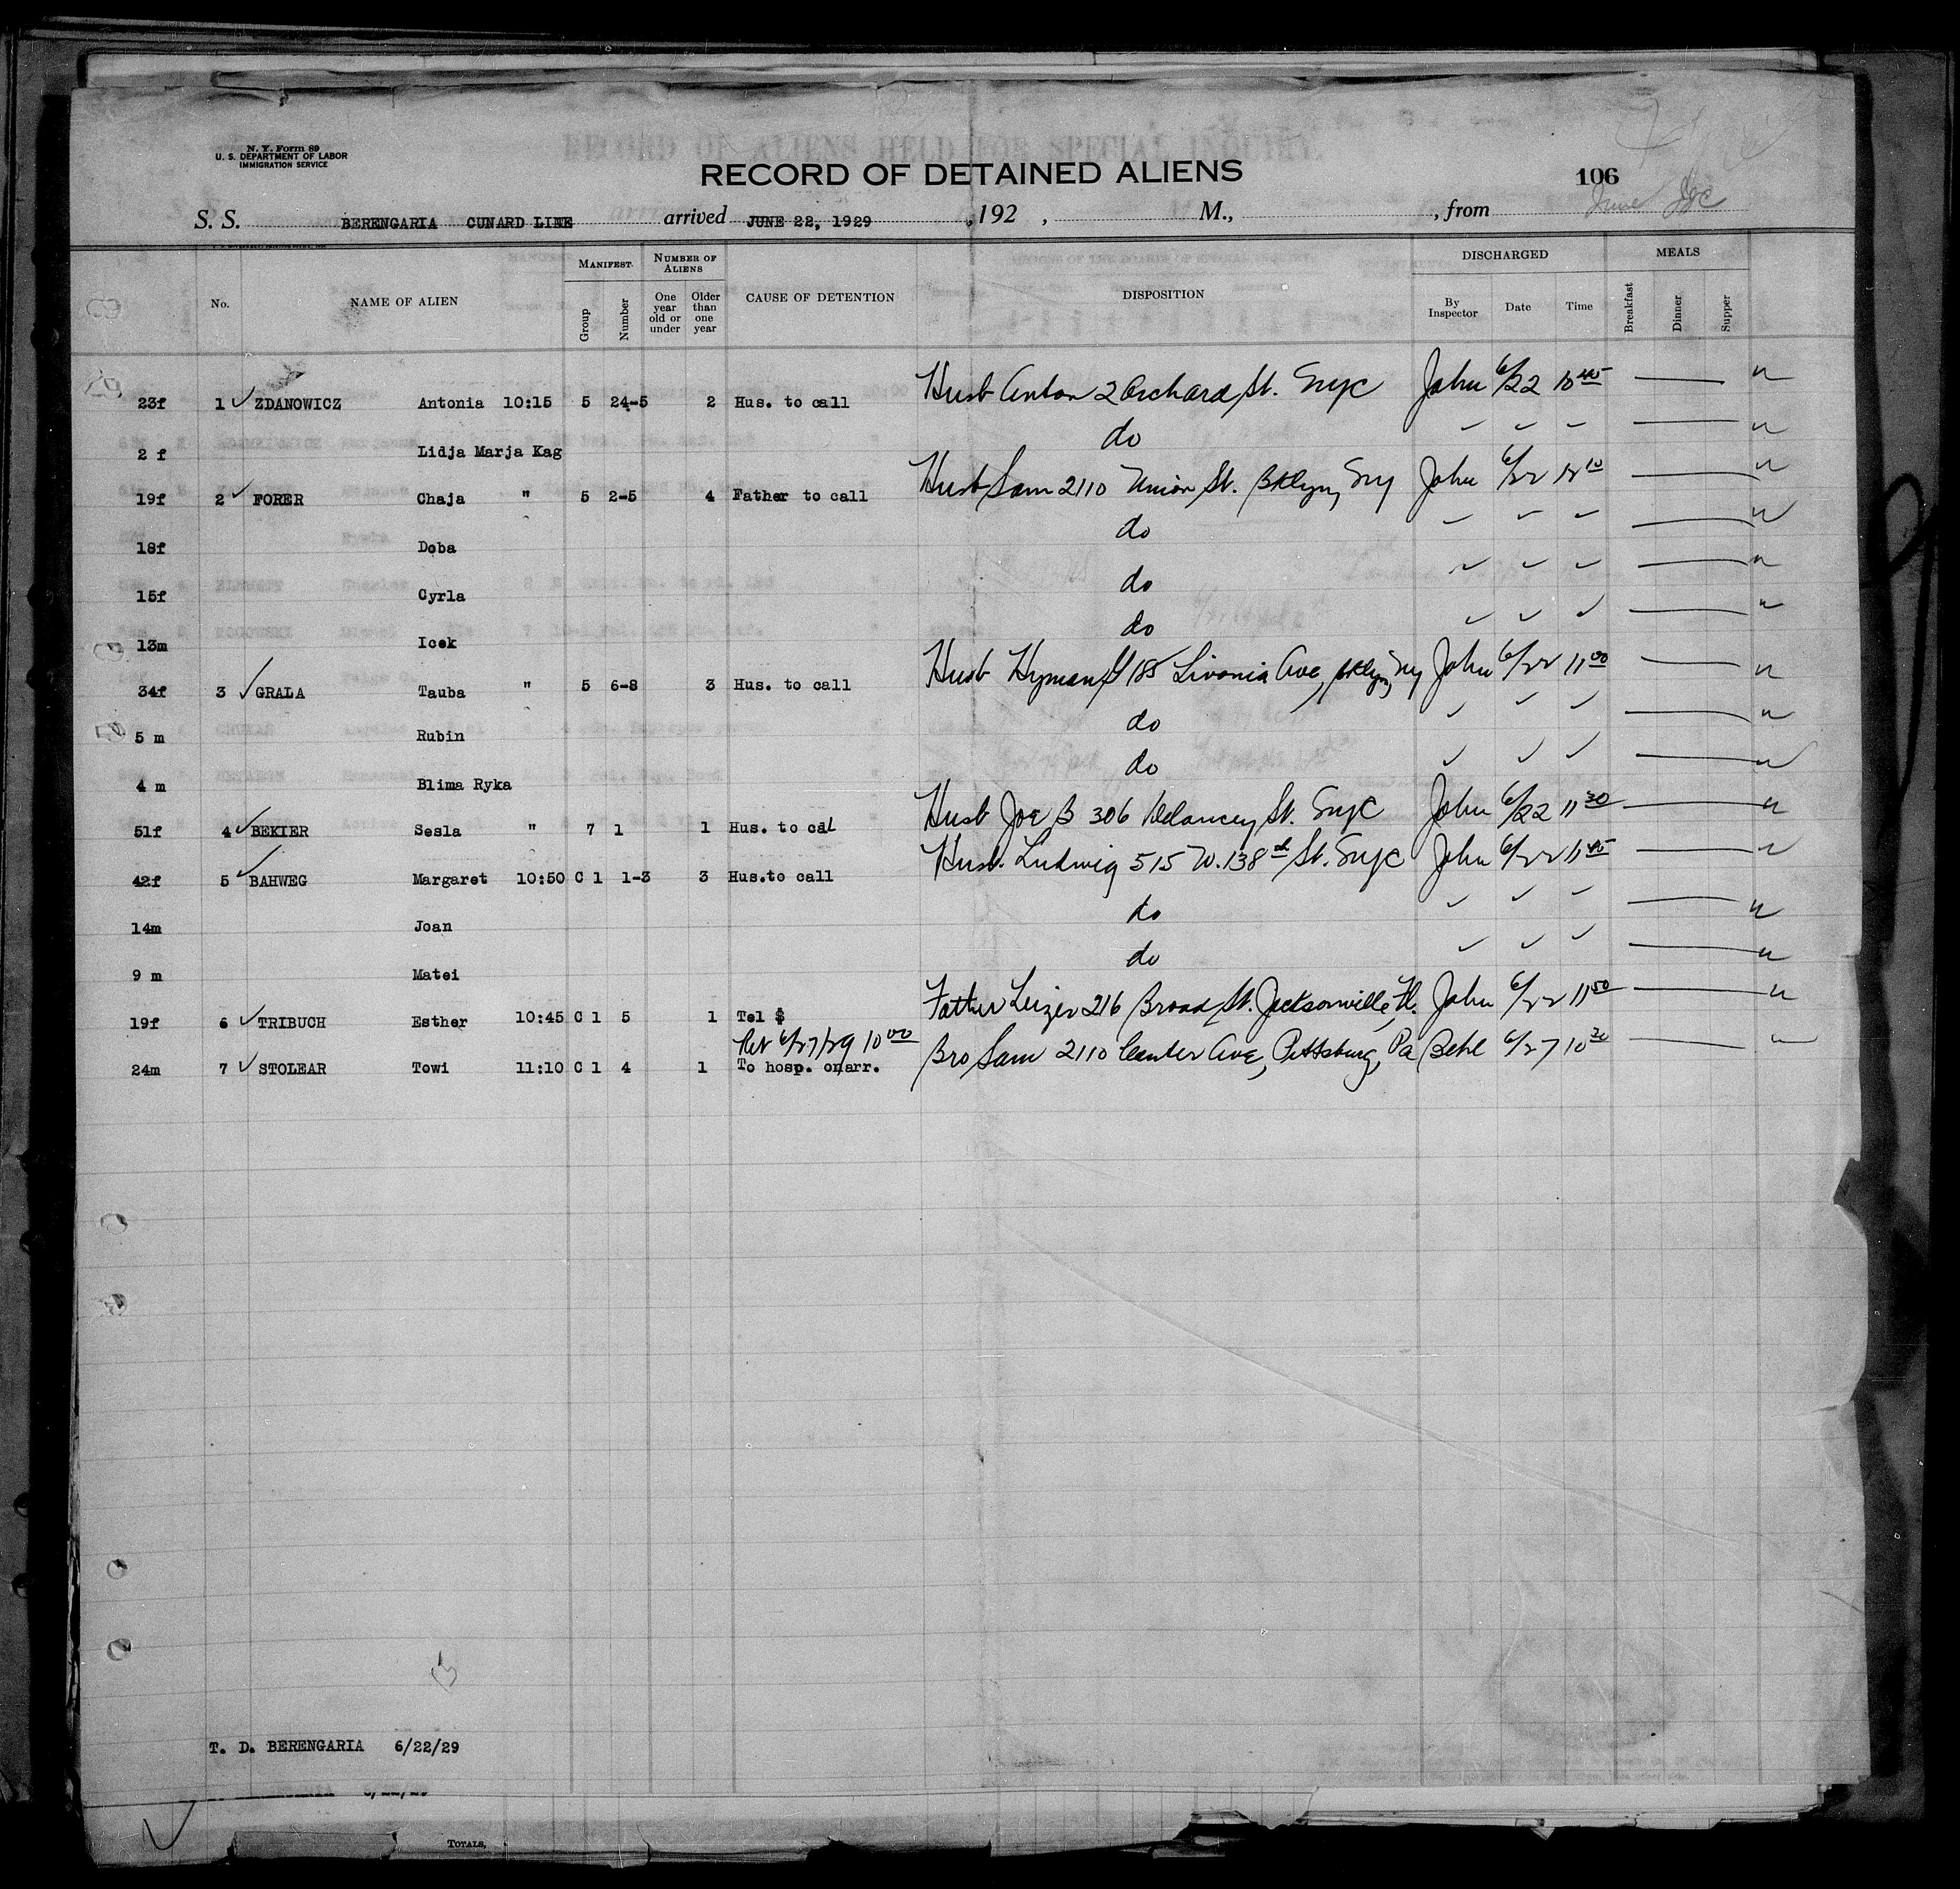 N. Y. Form 89
U. S. DEPARTMENT OF LABOR
IMMIGRATION SERVICE
RECORD OF ALIENS HELD FOR SPECIAL INQUIRY.
RECORD OF DETAINED ALIENS
106
S. S. BERENGARIA CUNARD LINE arrived JUNE 22, 1929 , 192 , M., , from
No. NAME OF ALIEN MANIFEST. Group Number NUMBER OF ALIENS One year old or under Older than one year CAUSE OF DETENTION DISPOSITION DISCHARGED By Inspector Date Time MEALS Breakfast Dinner Supper
23f 1 ✓ ZDANOWICZ Antonia 10:15 5 24-5 2 Hus. to call Husb Anton 2 Orchard St. NYC John 6/22 10 45
2 f Lidja Marja Kag do
19f 2 ✓ FORER Chaja " 5 2-5 4 Father to call Husb Sam 2110 Union St. Bklyn, NY John 6/22 12 10
18f Doba do
15f Cyrla do
13m Icek do
34f 3 ✓ GRALA Tauba " 5 6-8 3 Hus. to call Husb Hyman G 185 Livonia Ave, Bklyn, NY John 6/22 11 00
5 m Rubin do
4 m Blima Ryka do
51f 4 ✓ BEKIER Sesla " 7 1 1 Hus. to cal Husb Joe B 306 Delancey St. NYC John 6/22 11 30
42f 5 ✓ BAHWEG Margaret 10:50 C 1 1-3 3 Hus.to call Husb. Ludwig 515 W. 138 St. NYC John 6/22 11 45
14m Joan do
9 m Matei do
19f 6 ✓ TRIBUCH Esther 10:45 C 1 5 1 Tel $ Father Leizer 216 Broad St. Jacksonville, Fl. John 6/22 11 50
Ret 6/27/29 10 00
24m 7 ✓ STOLEAR Towi 11:10 C 1 4 1 To hosp. on arr. Bro Sam 2110 Center Ave, Pittsburg, Pa Behl 6/27 10 30
T. D. BERENGARIA 6/22/29
TOTALS,